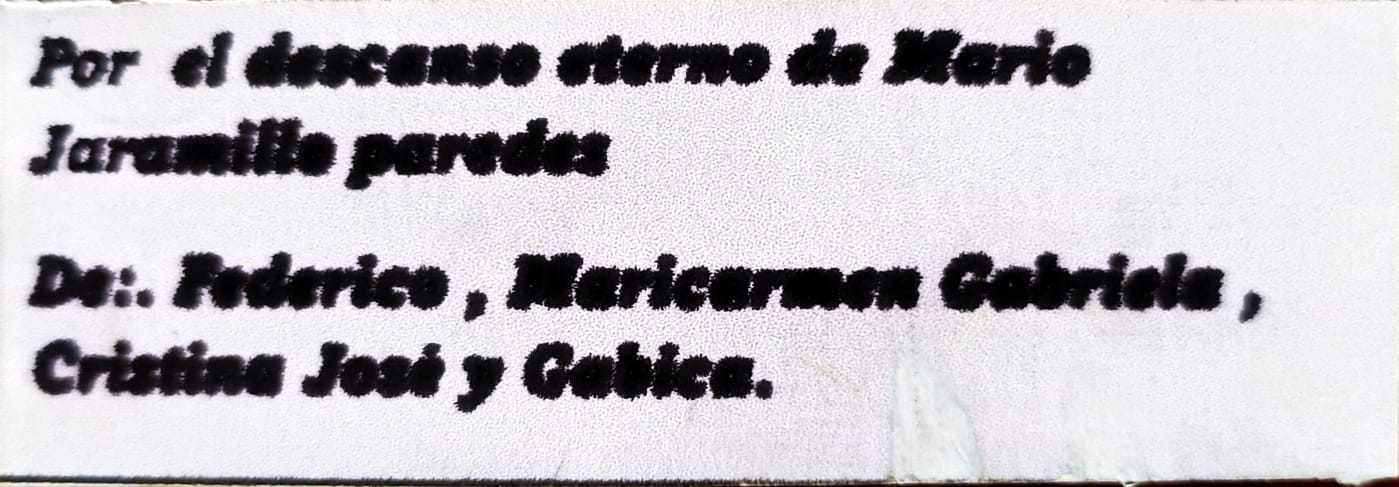 Por el descanso eterno de Mario
Jaramillo paredes
De:. Federico , Maricarmen Gabriela ,
Cristina José y Gabica.